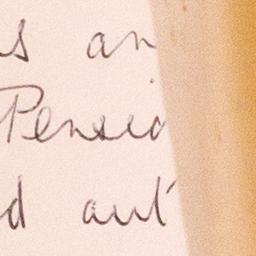 s an
Pensio
d aut